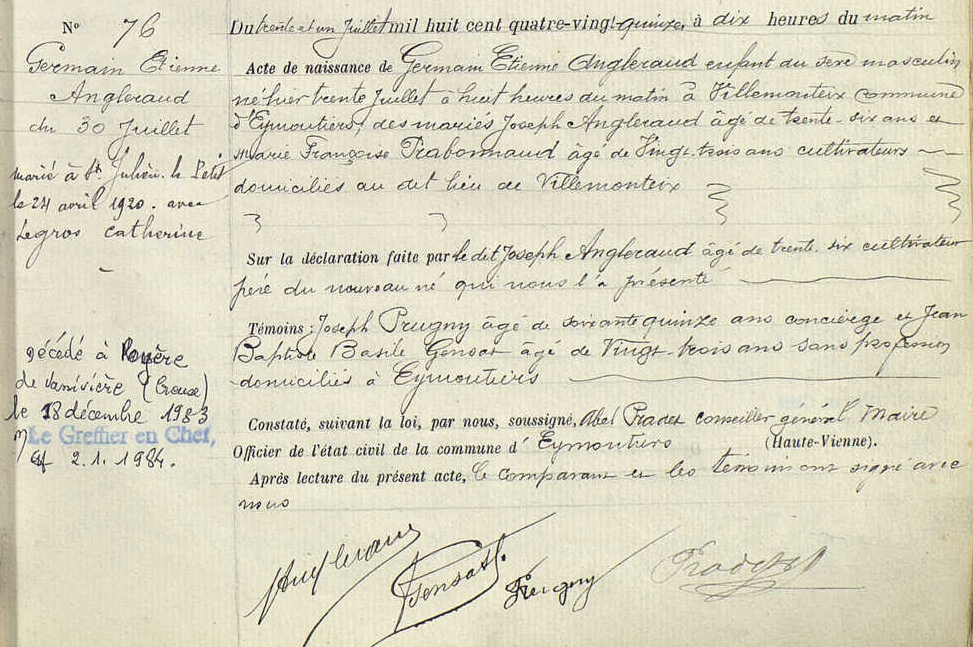 N° 76
Germain Etienne
Angleraud
du 30 Juillet
marié à St Julien. le Petit
le 24 avril 1920. avec
Legros Catherine
Décédé à Royère
de Vassivière (Creuse)
le 18 décembre 1983
Le Greffier en Chef,
2.1.1984.
Du trente et un Juillet mil huit cent quatre-vingt-quinze, à dix heures du matin
Acte de naissance de Germain Etienne Angleraud enfant du sexe masculin
né hier trente Juillet à huit heures du matin à Villemonteix commune
d'Eymoutiers, des mariés Joseph Angleraud âgé de trente-six ans et
Marie Françoise Trabonnaud âgé de Vingt-trois ans cultivateurs
domiciliés au dit lieu de Villemonteix
Sur la déclaration faite par le dit Joseph Angleraud âgé de trente-six cultivateur
père du nouveau né qui nous l'a présenté
Témoins : Joseph Prugny âgé de soixante quinze ans concierge et Jean
Baptiste Basile Gensat âgé de Vingt-trois ans sans profession
domiciliés à Eymoutiers
Constaté, suivant la loi, par nous, soussigné, Abel Pradet conseiller général Maire
Officier de l'état civil de la commune d'Eymoutiers (Haute-Vienne).
Après lecture du présent acte, le comparant et les témoins ont signé avec
nous
Angleraud
Gensat.
Prugny
Pradet